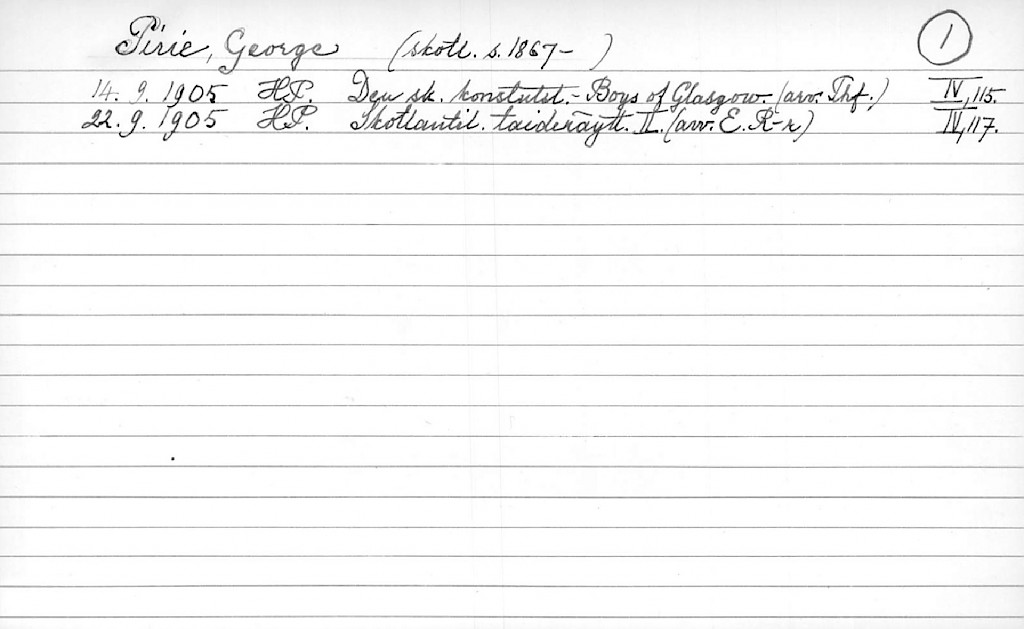 Pirie, George (skotl. s. 1867- ) 1
14. 9. 1905 HP. Den sk. konstutst. - Boys of Glasgow. (arv. Thf.) IV, 115.
22. 9. 1905 HP. Skotlantil. taidenäytt. II. (arv. E. R-r) IV, 117.